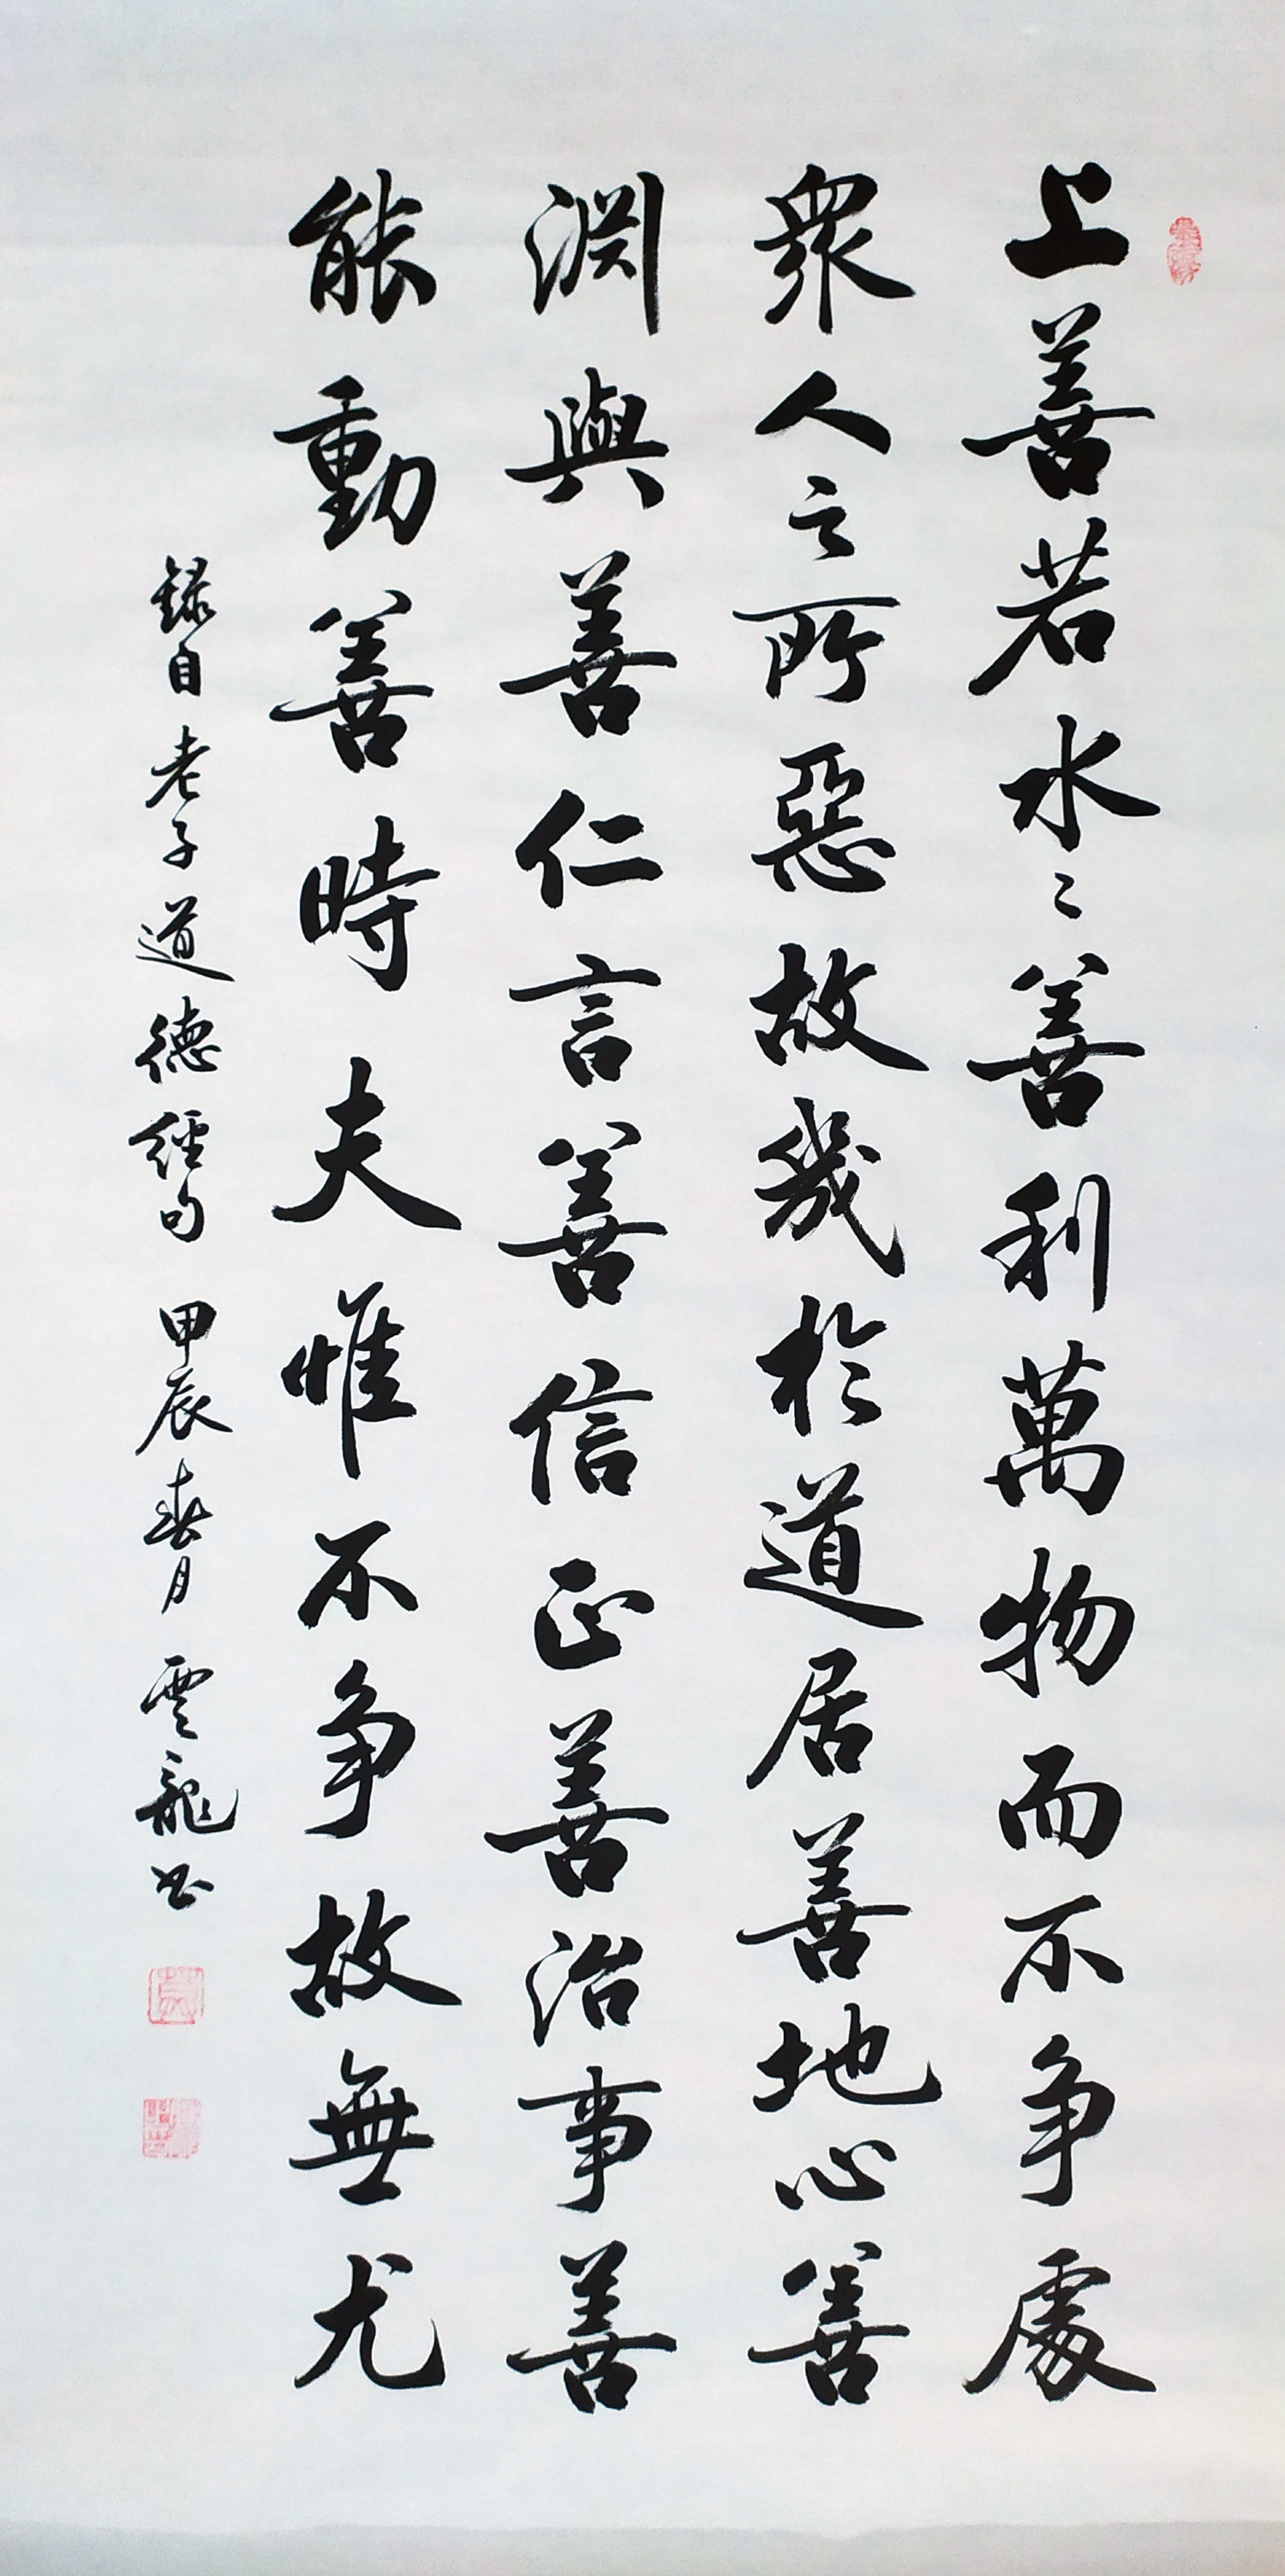 上善若水〻善利萬物而不争處
衆人之所惡故幾於道居善地心善
淵與善仁言善信正善治事善
能動善時夫惟不争故無尤
録自老子道德經句 甲辰春月 雲龍书